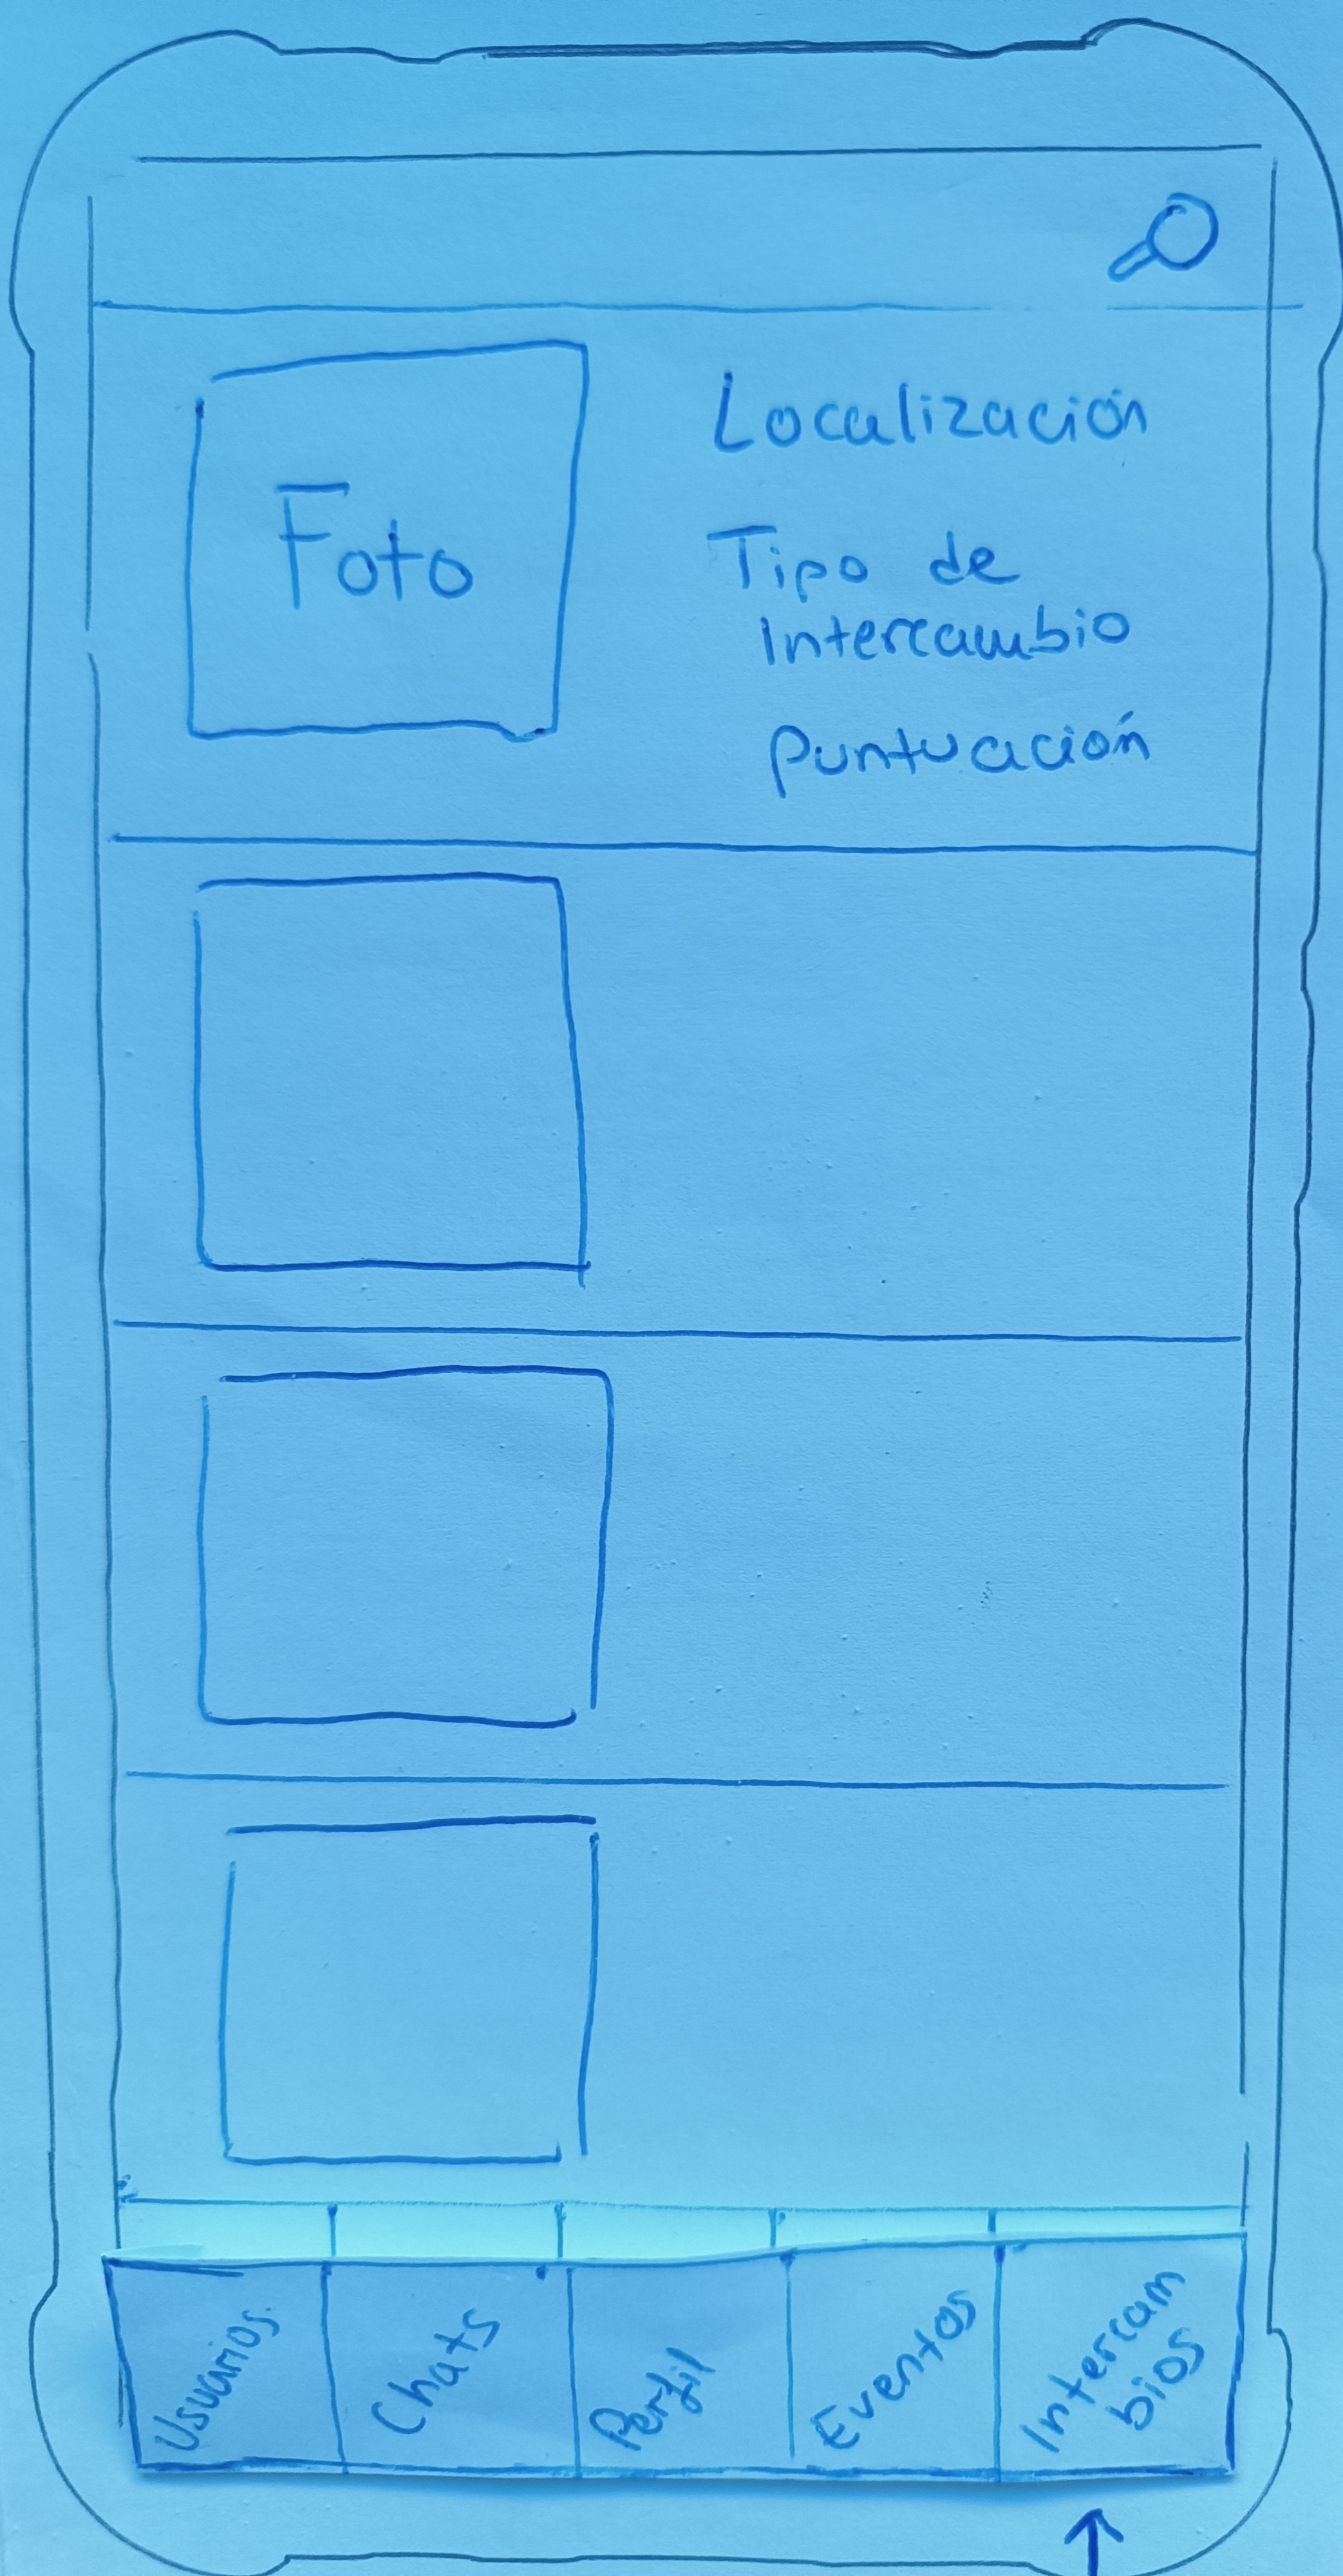 Foto
Localización
Tipo de
Intercambio
Puntuación
Usuarios
Chats
Perfil
Eventos
Intercam
bios